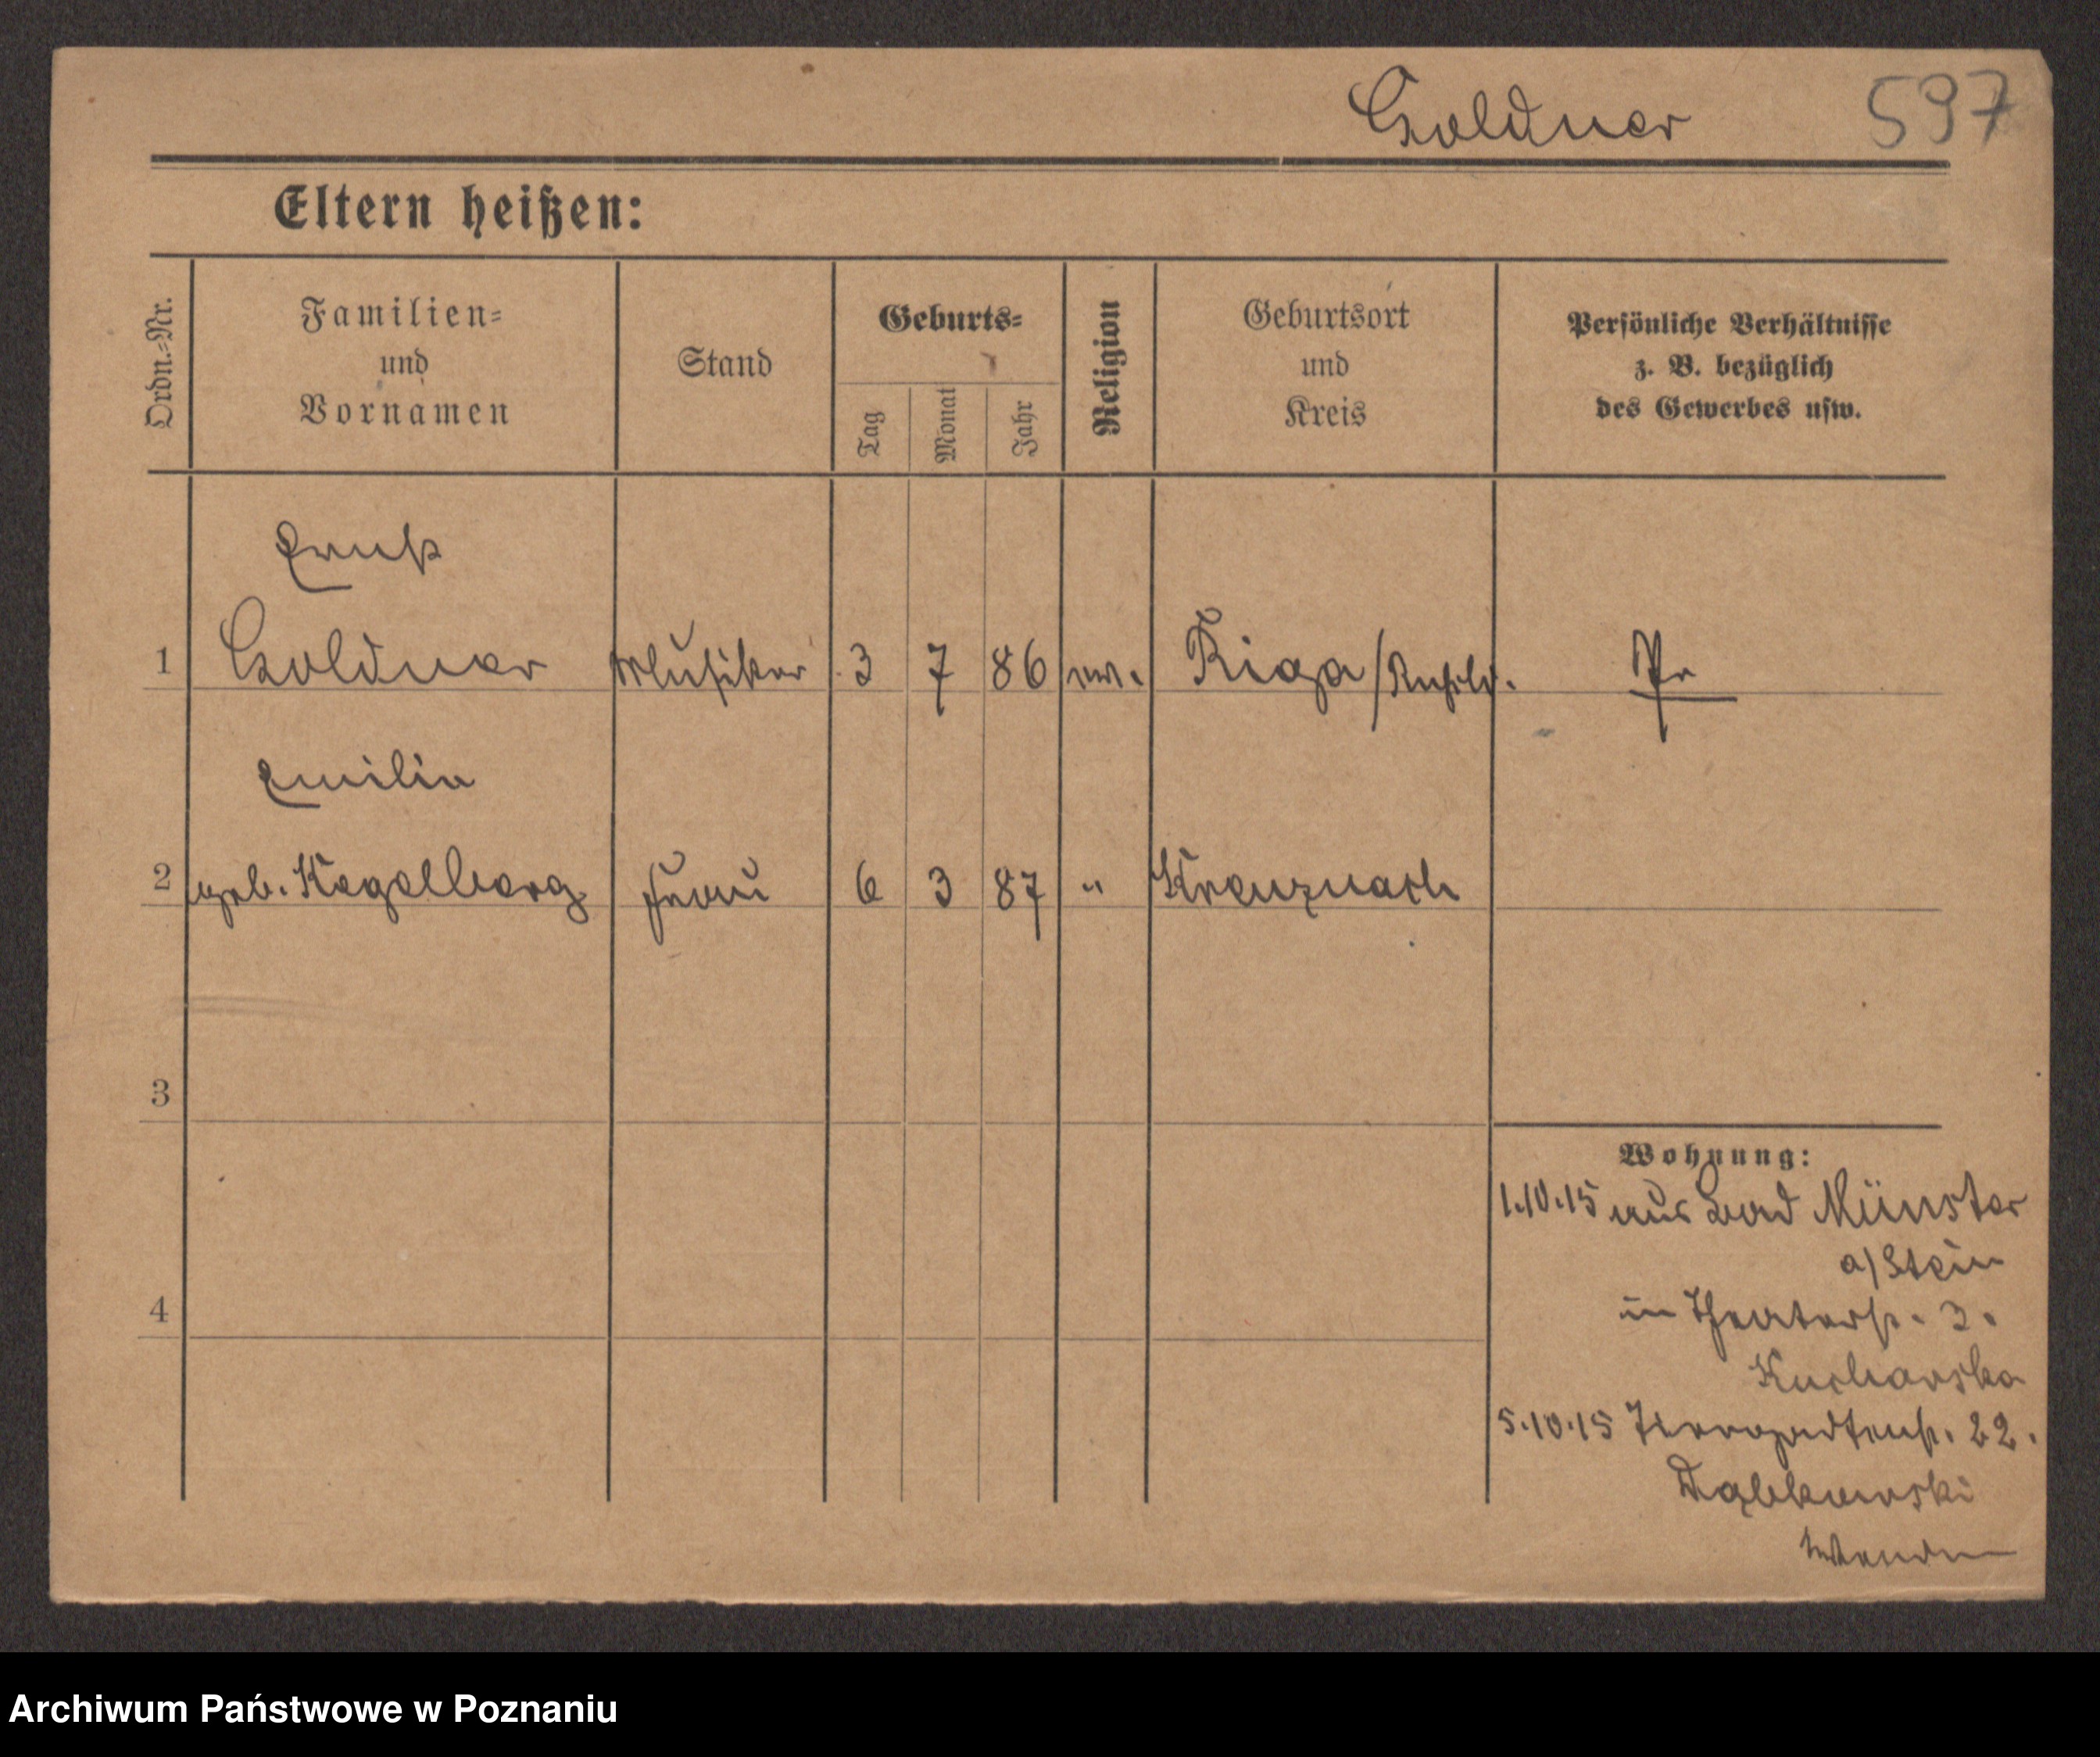 Goldner 597
Eltern heißen:
Ordn.=Nr.
Familien=
und
Vornamen
Stand
Geburts=
Tag
Monat
Jahr
Religion
Geburtsort
und
Kreis
Persönliche Verhältnisse
z. B. bezüglich
des Gewerbes usw.
Ernst
1 Goldner Musiker 3 7 86 ev. Riga /Rußld. Pr
Emilie
2 geb. Kegelberg Frau 6 3 87 " Kreuznach
3
4
Wohnung:
1.10.15 aus Bad Münster
a/Stein
in Theaterst. 3.
Kucharska
5.10.15 Tiergartenst. 22.
Dąbkowski
Archiwum Państwowe w Poznaniu